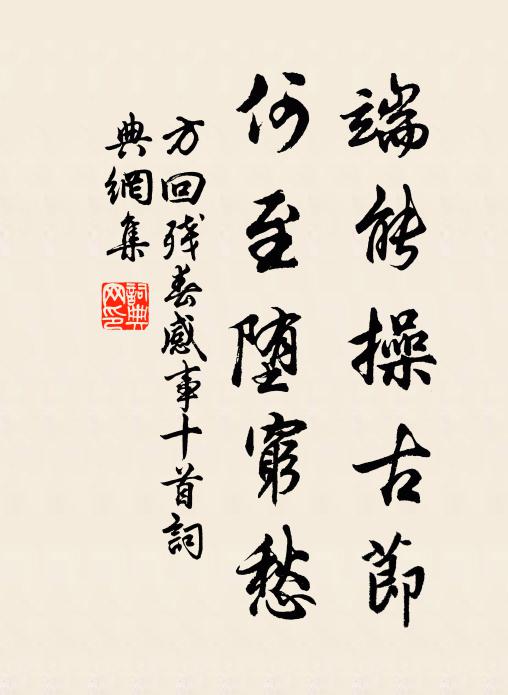 端能操古節
何至堕窮愁
方回残春感事十首詞
典網集
詞典
网印